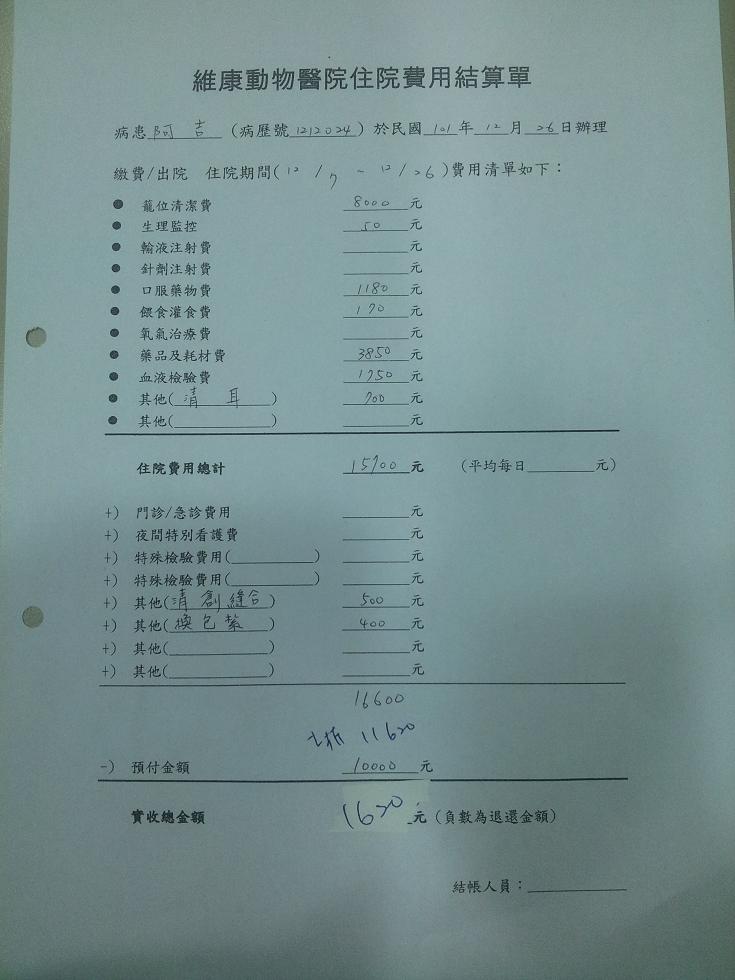 維康動物醫院住院費用結算單
病患阿吉（病歷號1212024）於民國101年12月26日辦理
繳費/出院 住院期間(12/7-12/26)費用清單如下：
● 籠位清潔費 8000元
● 生理監控 50元
● 輸液注射費 ______元
● 針劑注射費 ______元
● 口服藥物費 1180元
● 餵食灌食費 170元
● 氧氣治療費 ______元
● 藥品及耗材費 3850元
● 血液檢驗費 1750元
● 其他(清耳) 700元
● 其他(__________) ______元
住院費用總計 15700元 (平均每日______元)
+) 門診/急診費用 ______元
+) 夜間特別看護費 ______元
+) 特殊檢驗費用(________) ______元
+) 特殊檢驗費用(________) ______元
+) 其他(清創縫合) 500元
+) 其他(換包紮) 400元
+) 其他(__________) ______元
+) 其他(__________) ______元
16600
七折 11620
-) 預付金額 10000元
實收總金額 1620元 (負數為退還金額)
結帳人員：__________